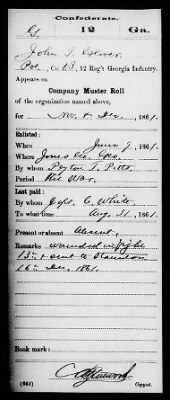 Confederate.
G 12 Ga.
John T.
Pvt., Co. B, 12 Reg't Georgia Infantry.
Appears on
Company Muster Roll
of the organization named above,
for Nov & Dec, 1861.
Enlisted:
When June 9, 1861.
Where Jones Co. Geo
By whom Peyton T. Pitts
Period the War
Last paid:
By whom Capt. C. White
To what time Aug. 31, 1861.
Present or absent Absent,
Remarks wounded in fight
13th & sent to Staunton
16th Dec, 1861.
Book mark:
(641) Copyist.